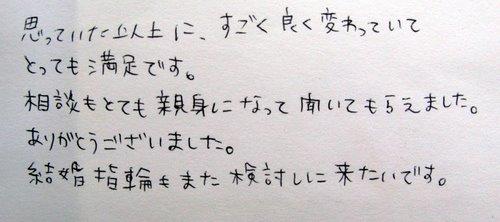 思っていた以上に、すごく良く変わっていて
とっても満足です。
相談もとても親身になって聞いてもらえました。
ありがとうございました。
結婚指輪もまた検討しに来たいです。